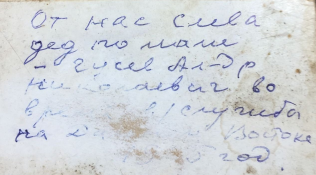 От нас слева
дед по маме
- Гусев Ал-др
Николаевич во
службы
на Востоке
год.